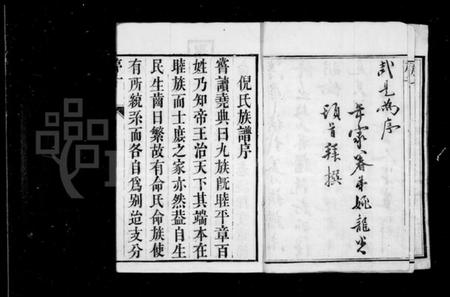 武是為序
年家眷弟姚龍光
頓首拜撰
倪氏族譜序
嘗讀堯典曰九族旣睦平章百
姓乃知帝王治天下其端本在
睦族而士庶之家亦然葢自生
民生齒日繁故有命氏命族使
有所統系而各自爲别迨支分